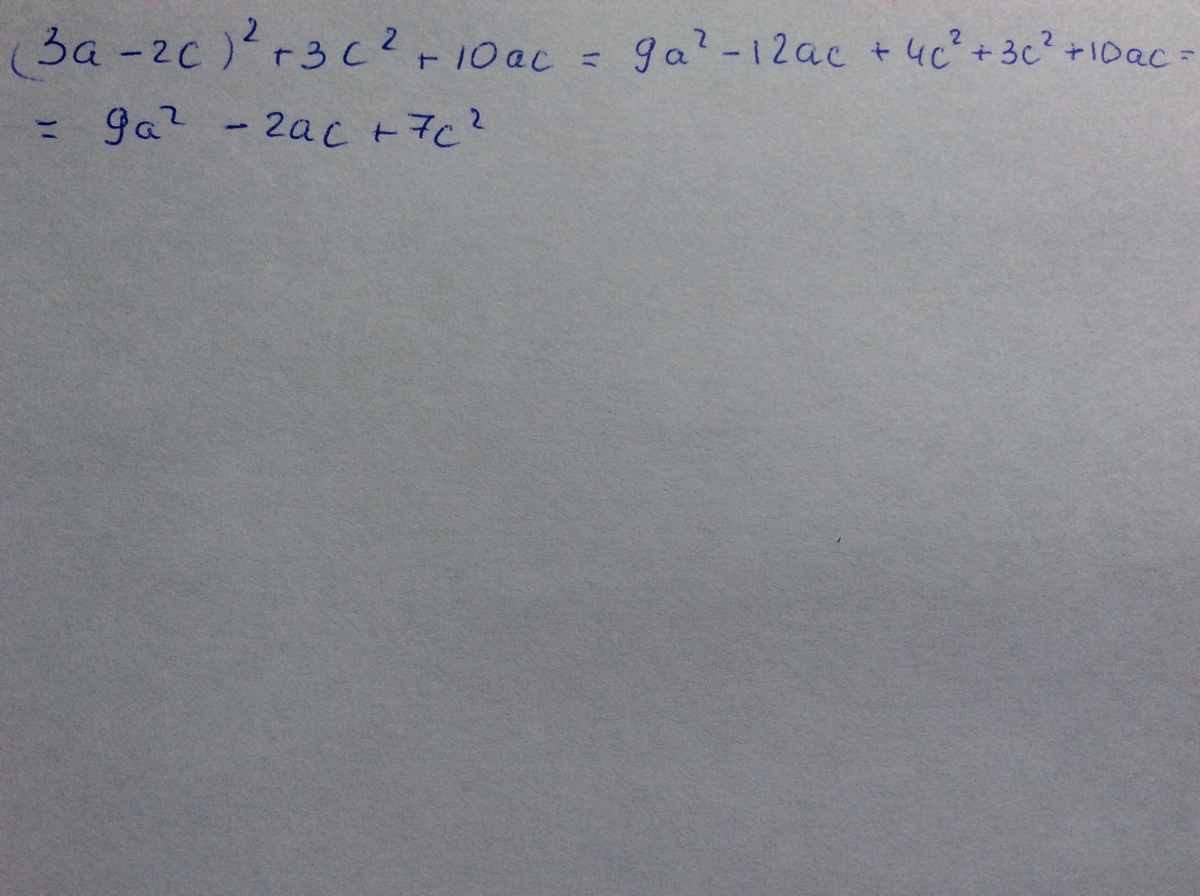 (3a - 2c)² + 3c² + 10ac = 9a² - 12ac + 4c² + 3c² + 10ac =
= 9a² - 2ac + 7c²